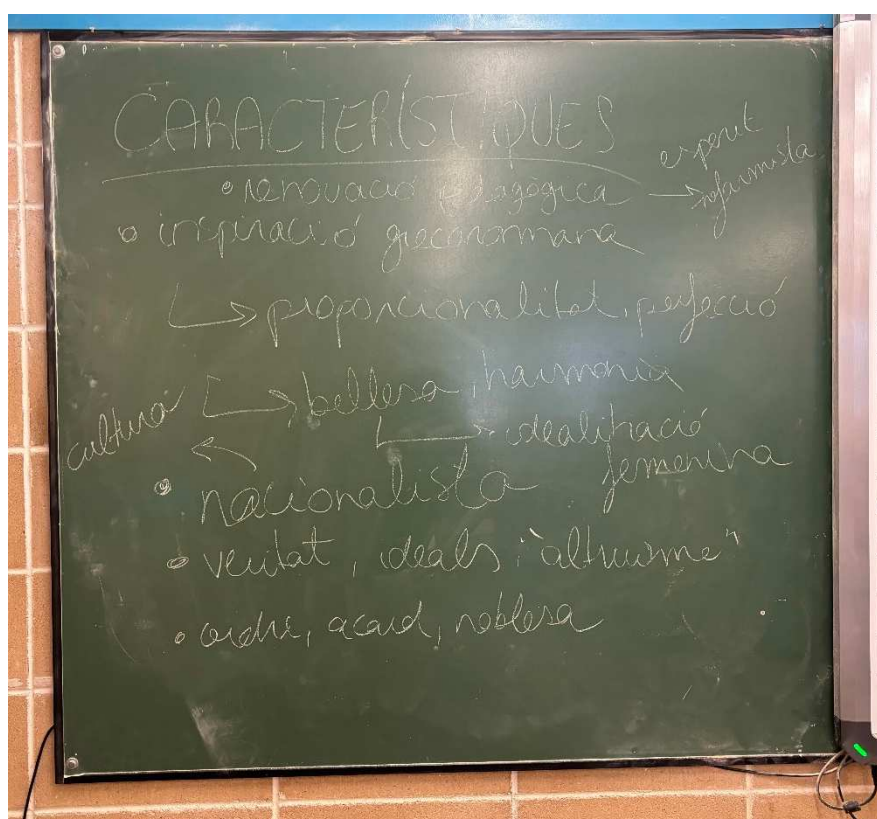 CARACTERÍSTIQUES
• renovació pedagògica → esperit reformista
• inspiració grecoromana
↳ proporcionalitat, perfecció
↳ bellesa, harmonia
↳ idealització femenina
cultura ←
• nacionalista
• veritat, ideals, "altruisme"
• ordre, acord, noblesa